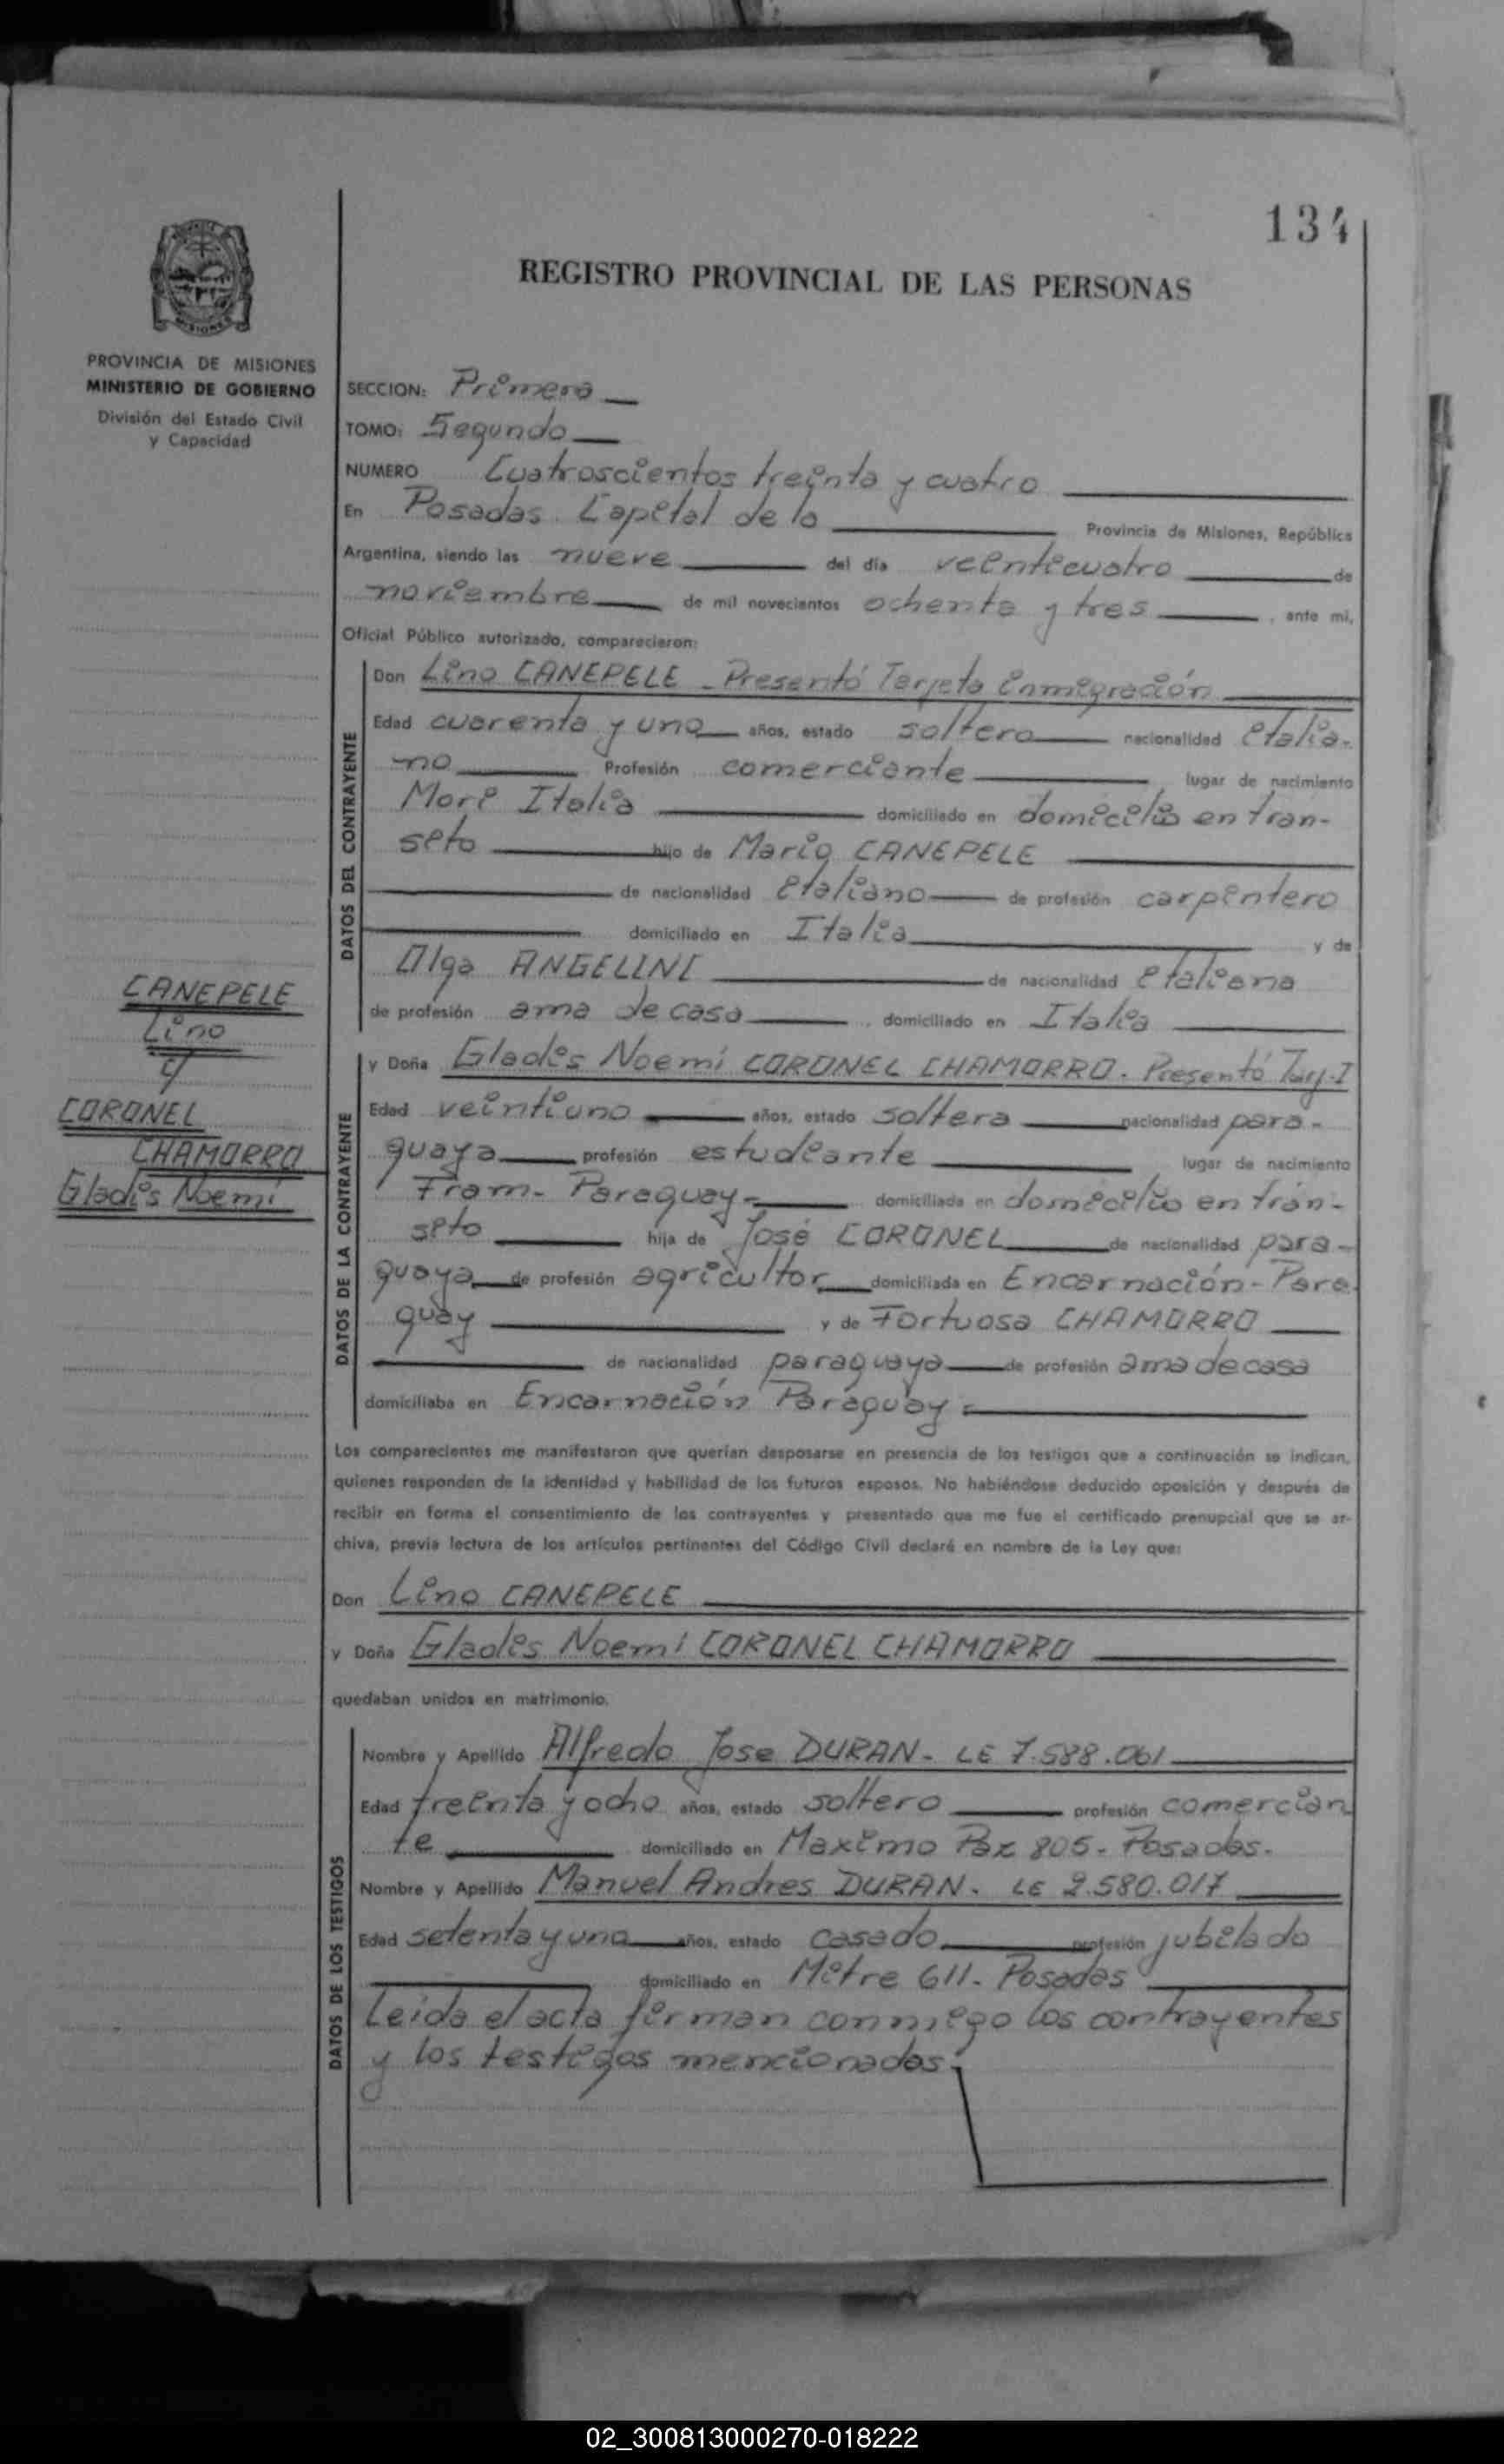 134
REGISTRO PROVINCIAL DE LAS PERSONAS
MISIONES
PROVINCIA DE MISIONES
MINISTERIO DE GOBIERNO
División del Estado Civil
y Capacidad
SECCION: Primera
TOMO: Segundo
NUMERO Cuatroscientos treinta y cuatro
En Posadas. Capital de la Provincia de Misiones, República
Argentina, siendo las nueve del día veinticuatro de
noviembre de mil novecientos ochenta y tres , ante mi,
Oficial Público autorizado, comparecieron:
DATOS DEL CONTRAYENTE
Don Lino CANEPELE - Presentó Tarjeta inmigración
Edad cuarenta y uno años, estado soltero nacionalidad italia-
no Profesión comerciante lugar de nacimiento
Mori Italia domiciliado en domicilio en tran-
sito hijo de Mario CANEPELE
de nacionalidad italiano de profesión carpintero
domiciliado en Italia y de
Olga ANGELINI de nacionalidad italiana
de profesión ama de casa , domiciliado en Italia
CANEPELE
Lino
c/
CORONEL
CHAMORRO
Gladis Noemi
DATOS DE LA CONTRAYENTE
y Doña Gladis Noemi CORONEL CHAMORRO. Presentó Tarj. I
Edad veintiuno años, estado soltera nacionalidad para-
guaya profesión estudiante lugar de nacimiento
Fram- Paraguay- domiciliada en domicilio en trán-
sito hija de José CORONEL de nacionalidad para-
guaya de profesión agricultor domiciliada en Encarnación-Para
guay y de Fortuosa CHAMORRO
de nacionalidad paraguaya de profesión ama de casa
domiciliaba en Encarnación Paraguay-
Los comparecientes me manifestaron que querían desposarse en presencia de los testigos que a continuación se indican,
quienes responden de la identidad y habilidad de los futuros esposos. No habiéndose deducido oposición y después de
recibir en forma el consentimiento de los contrayentes y presentado que me fue el certificado prenupcial que se ar-
chiva, previa lectura de los artículos pertinentes del Código Civil declaré en nombre de la Ley que:
Don Lino CANEPELE
y Doña Gladis Noemi CORONEL CHAMORRO
quedaban unidos en matrimonio.
DATOS DE LOS TESTIGOS
Nombre y Apellido Alfredo Jose DURAN- LE 7.588.061
Edad treinta y ocho años, estado soltero profesión comercian
te domiciliado en Maximo Paz 805- Posadas.
Nombre y Apellido Manuel Andres DURAN. LE 2.580.017
Edad setenta y uno años, estado casado profesión jubilado
domiciliado en Mitre 611- Posadas
Leida el acta firman conmigo los contrayentes
y los testigos mencionados.
02_300813000270-018222